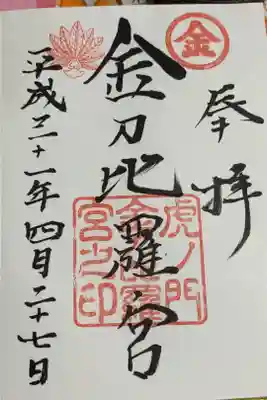 奉拝
金
金刀比羅宮
虎ノ門
金刀比羅
宮之印
平成二十一年四月二十七日